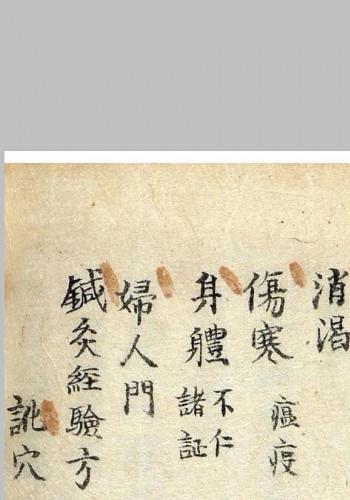 消渴
傷寒 瘟疫
身體 不仁
諸証
婦人門
鍼灸經驗方
訛穴